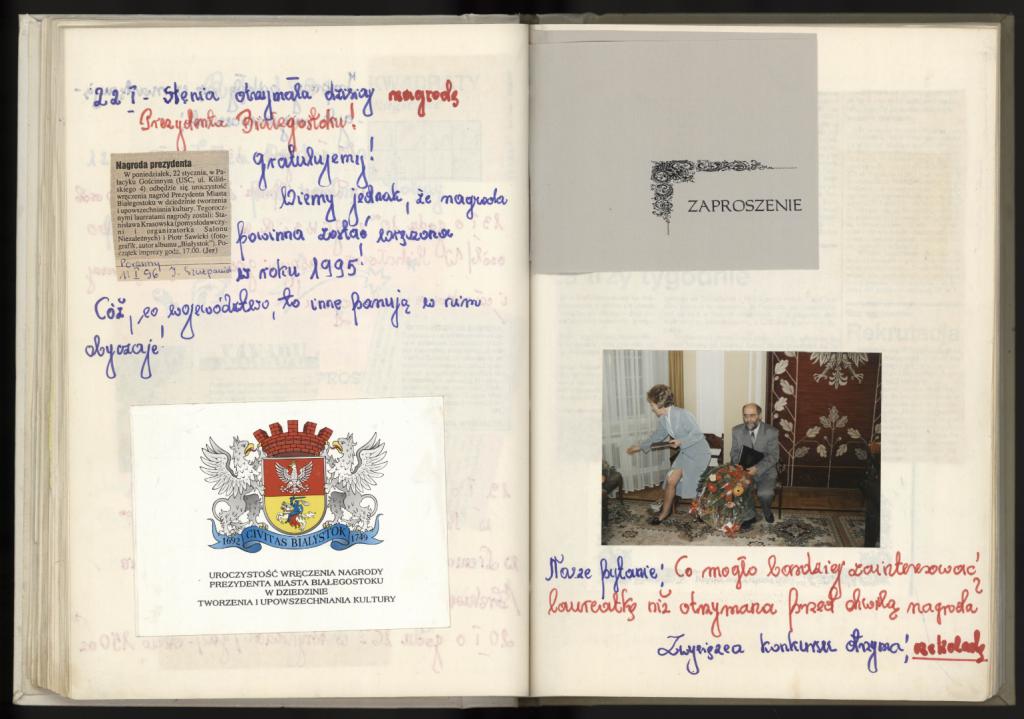 22 I - Stenia otrzymała dzisiaj nagrodę
Prezydenta Białegostoku!
Gratulujemy!
Wiemy jednak, że nagroda
powinna zostać wręczona
w roku 1995!
Nagroda prezydenta
W poniedziałek, 22 stycznia, w Pa-
łacyku Gościnnym (USC, ul. Kiliń-
skiego 4) odbędzie się uroczystość
wręczenia nagród Prezydenta Miasta
Białegostoku w dziedzinie tworzenia
i upowszechniania kultury. Tegorocz-
nymi laureatami nagrody zostali: Sta-
nisława Krasowska (pomysłodawczy-
ni i organizatorka Salonu
Niezależnych) i Piotr Sawicki (foto-
grafik, autor albumu „Białystok”). Po-
czątek imprezy godz. 17.00. (Jer)
Poranny
I 96
Cóż, co województwo, to inne panują w nim
obyczaje!
1692 CIVITAS BIALYSTOK 1749
UROCZYSTOŚĆ WRĘCZENIA NAGRODY
PREZYDENTA MIASTA BIAŁEGOSTOKU
W DZIEDZINIE
TWORZENIA I UPOWSZECHNIANIA KULTURY
ZAPROSZENIE
Nasze pytanie: Co mogło bardziej zainteresować
laureatkę niż otrzymana przed chwilą nagroda?
Zwycięzca konkursu otrzyma: czekoladę